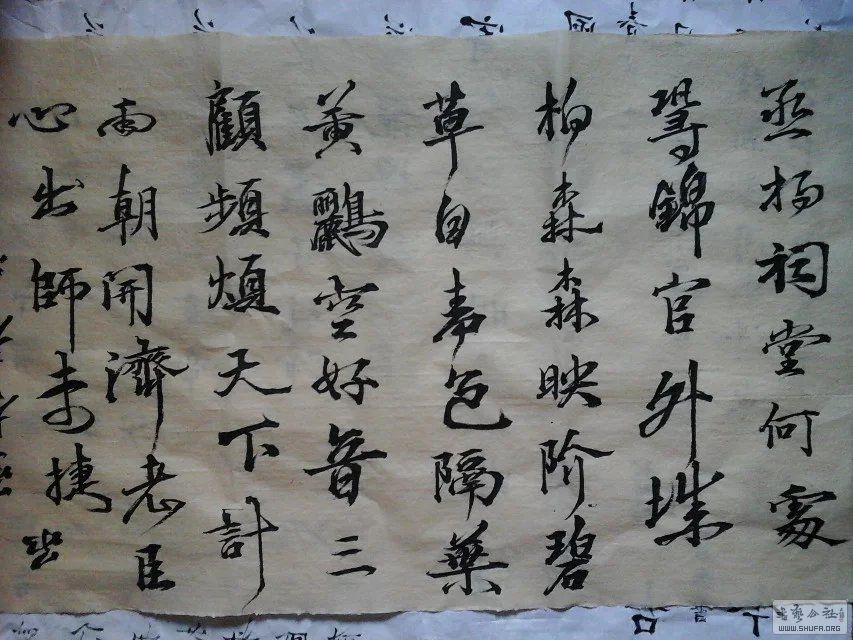 丞相祠堂何處
尋錦官外城
柏森森映阶碧
草自春色隔葉
黄鸝空好音三
顧頻煩天下計
兩朝開濟老臣
心出師未捷
书艺公社
WWW.SHUFA.ORG